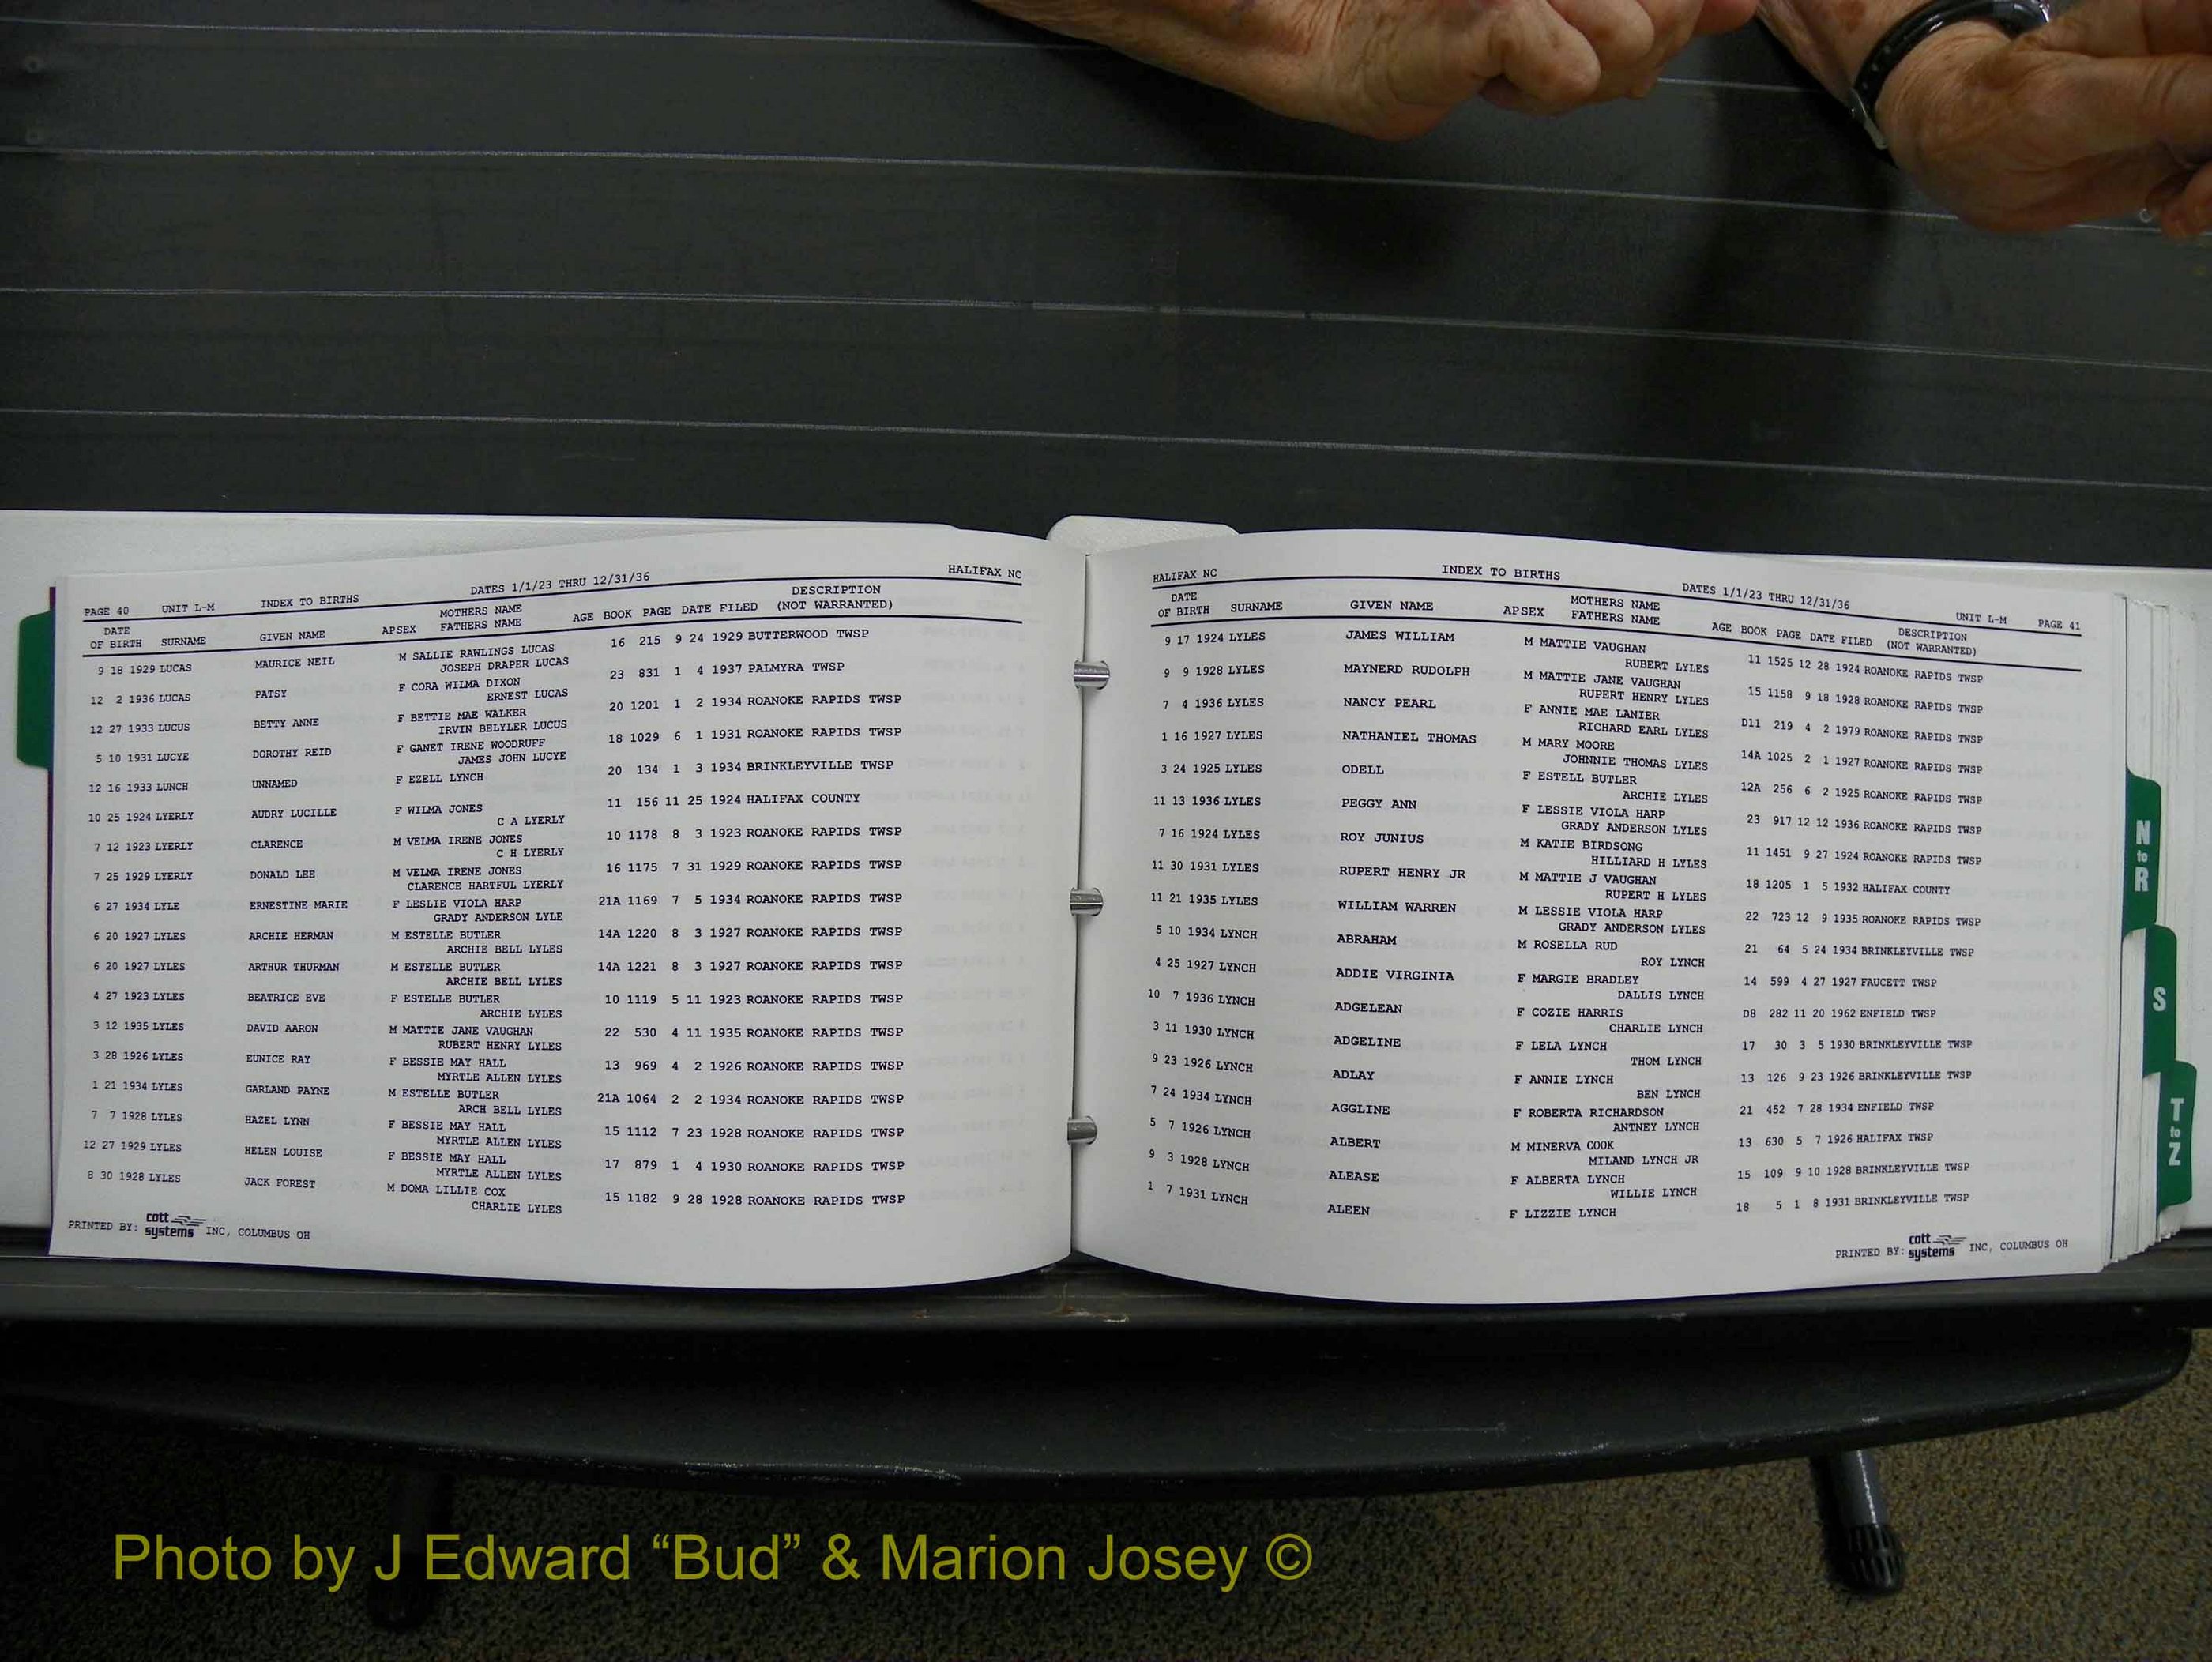 PAGE 40 UNIT L-M INDEX TO BIRTHS DATES 1/1/23 THRU 12/31/36 HALIFAX NC
DATE MOTHERS NAME DESCRIPTION
OF BIRTH SURNAME GIVEN NAME APSEX FATHERS NAME AGE BOOK PAGE DATE FILED (NOT WARRANTED)
9 18 1929 LUCAS MAURICE NEIL M SALLIE RAWLINGS LUCAS 16 215 9 24 1929 BUTTERWOOD TWSP
JOSEPH DRAPER LUCAS
12 2 1936 LUCAS PATSY F CORA WILMA DIXON 23 831 1 4 1937 PALMYRA TWSP
ERNEST LUCAS
12 27 1933 LUCUS BETTY ANNE F BETTIE MAE WALKER 20 1201 1 2 1934 ROANOKE RAPIDS TWSP
IRVIN BELYLER LUCUS
5 10 1931 LUCYE DOROTHY REID F GANET IRENE WOODRUFF 18 1029 6 1 1931 ROANOKE RAPIDS TWSP
JAMES JOHN LUCYE
12 16 1933 LUNCH UNNAMED F EZELL LYNCH 20 134 1 3 1934 BRINKLEYVILLE TWSP
10 25 1924 LYERLY AUDRY LUCILLE F WILMA JONES 11 156 11 25 1924 HALIFAX COUNTY
C A LYERLY
7 12 1923 LYERLY CLARENCE M VELMA IRENE JONES 10 1178 8 3 1923 ROANOKE RAPIDS TWSP
C H LYERLY
7 25 1929 LYERLY DONALD LEE M VELMA IRENE JONES 16 1175 7 31 1929 ROANOKE RAPIDS TWSP
CLARENCE HARTFUL LYERLY
6 27 1934 LYLE ERNESTINE MARIE F LESLIE VIOLA HARP 21A 1169 7 5 1934 ROANOKE RAPIDS TWSP
GRADY ANDERSON LYLE
6 20 1927 LYLES ARCHIE HERMAN M ESTELLE BUTLER 14A 1220 8 3 1927 ROANOKE RAPIDS TWSP
ARCHIE BELL LYLES
6 20 1927 LYLES ARTHUR THURMAN M ESTELLE BUTLER 14A 1221 8 3 1927 ROANOKE RAPIDS TWSP
ARCHIE BELL LYLES
4 27 1923 LYLES BEATRICE EVE F ESTELLE BUTLER 10 1119 5 11 1923 ROANOKE RAPIDS TWSP
ARCHIE LYLES
3 12 1935 LYLES DAVID AARON M MATTIE JANE VAUGHAN 22 530 4 11 1935 ROANOKE RAPIDS TWSP
RUBERT HENRY LYLES
3 28 1926 LYLES EUNICE RAY F BESSIE MAY HALL 13 969 4 2 1926 ROANOKE RAPIDS TWSP
MYRTLE ALLEN LYLES
1 21 1934 LYLES GARLAND PAYNE M ESTELLE BUTLER 21A 1064 2 2 1934 ROANOKE RAPIDS TWSP
ARCH BELL LYLES
7 7 1928 LYLES HAZEL LYNN F BESSIE MAY HALL 15 1112 7 23 1928 ROANOKE RAPIDS TWSP
MYRTLE ALLEN LYLES
12 27 1929 LYLES HELEN LOUISE F BESSIE MAY HALL 17 879 1 4 1930 ROANOKE RAPIDS TWSP
MYRTLE ALLEN LYLES
8 30 1928 LYLES JACK FOREST M DOMA LILLIE COX 15 1182 9 28 1928 ROANOKE RAPIDS TWSP
CHARLIE LYLES
PRINTED BY: cott systems INC, COLUMBUS OH
HALIFAX NC INDEX TO BIRTHS DATES 1/1/23 THRU 12/31/36 UNIT L-M PAGE 41
DATE MOTHERS NAME DESCRIPTION
OF BIRTH SURNAME GIVEN NAME APSEX FATHERS NAME AGE BOOK PAGE DATE FILED (NOT WARRANTED)
9 17 1924 LYLES JAMES WILLIAM M MATTIE VAUGHAN 11 1525 12 28 1924 ROANOKE RAPIDS TWSP
RUBERT LYLES
9 9 1928 LYLES MAYNERD RUDOLPH M MATTIE JANE VAUGHAN 15 1158 9 18 1928 ROANOKE RAPIDS TWSP
RUPERT HENRY LYLES
7 4 1936 LYLES NANCY PEARL F ANNIE MAE LANIER D11 219 4 2 1979 ROANOKE RAPIDS TWSP
RICHARD EARL LYLES
1 16 1927 LYLES NATHANIEL THOMAS M MARY MOORE 14A 1025 2 1 1927 ROANOKE RAPIDS TWSP
JOHNNIE THOMAS LYLES
3 24 1925 LYLES ODELL F ESTELL BUTLER 12A 256 6 2 1925 ROANOKE RAPIDS TWSP
ARCHIE LYLES
11 13 1936 LYLES PEGGY ANN F LESSIE VIOLA HARP 23 917 12 12 1936 ROANOKE RAPIDS TWSP
GRADY ANDERSON LYLES
7 16 1924 LYLES ROY JUNIUS M KATIE BIRDSONG 11 1451 9 27 1924 ROANOKE RAPIDS TWSP
HILLIARD H LYLES
11 30 1931 LYLES RUPERT HENRY JR M MATTIE J VAUGHAN 18 1205 1 5 1932 HALIFAX COUNTY
RUPERT H LYLES
11 21 1935 LYLES WILLIAM WARREN M LESSIE VIOLA HARP 22 723 12 9 1935 ROANOKE RAPIDS TWSP
GRADY ANDERSON LYLES
5 10 1934 LYNCH ABRAHAM M ROSELLA RUD 21 64 5 24 1934 BRINKLEYVILLE TWSP
ROY LYNCH
4 25 1927 LYNCH ADDIE VIRGINIA F MARGIE BRADLEY 14 599 4 27 1927 FAUCETT TWSP
DALLIS LYNCH
10 7 1936 LYNCH ADGELEAN F COZIE HARRIS D8 282 11 20 1962 ENFIELD TWSP
CHARLIE LYNCH
3 11 1930 LYNCH ADGELINE F LELA LYNCH 17 30 3 5 1930 BRINKLEYVILLE TWSP
THOM LYNCH
9 23 1926 LYNCH ADLAY F ANNIE LYNCH 13 126 9 23 1926 BRINKLEYVILLE TWSP
BEN LYNCH
7 24 1934 LYNCH AGGLINE F ROBERTA RICHARDSON 21 452 7 28 1934 ENFIELD TWSP
ANTNEY LYNCH
5 7 1926 LYNCH ALBERT M MINERVA COOK 13 630 5 7 1926 HALIFAX TWSP
MILAND LYNCH JR
9 3 1928 LYNCH ALEASE F ALBERTA LYNCH 15 109 9 10 1928 BRINKLEYVILLE TWSP
WILLIE LYNCH
1 7 1931 LYNCH ALEEN F LIZZIE LYNCH 18 5 1 8 1931 BRINKLEYVILLE TWSP
PRINTED BY: cott systems INC, COLUMBUS OH
N to R
S
T to Z
Photo by J Edward “Bud” & Marion Josey ©